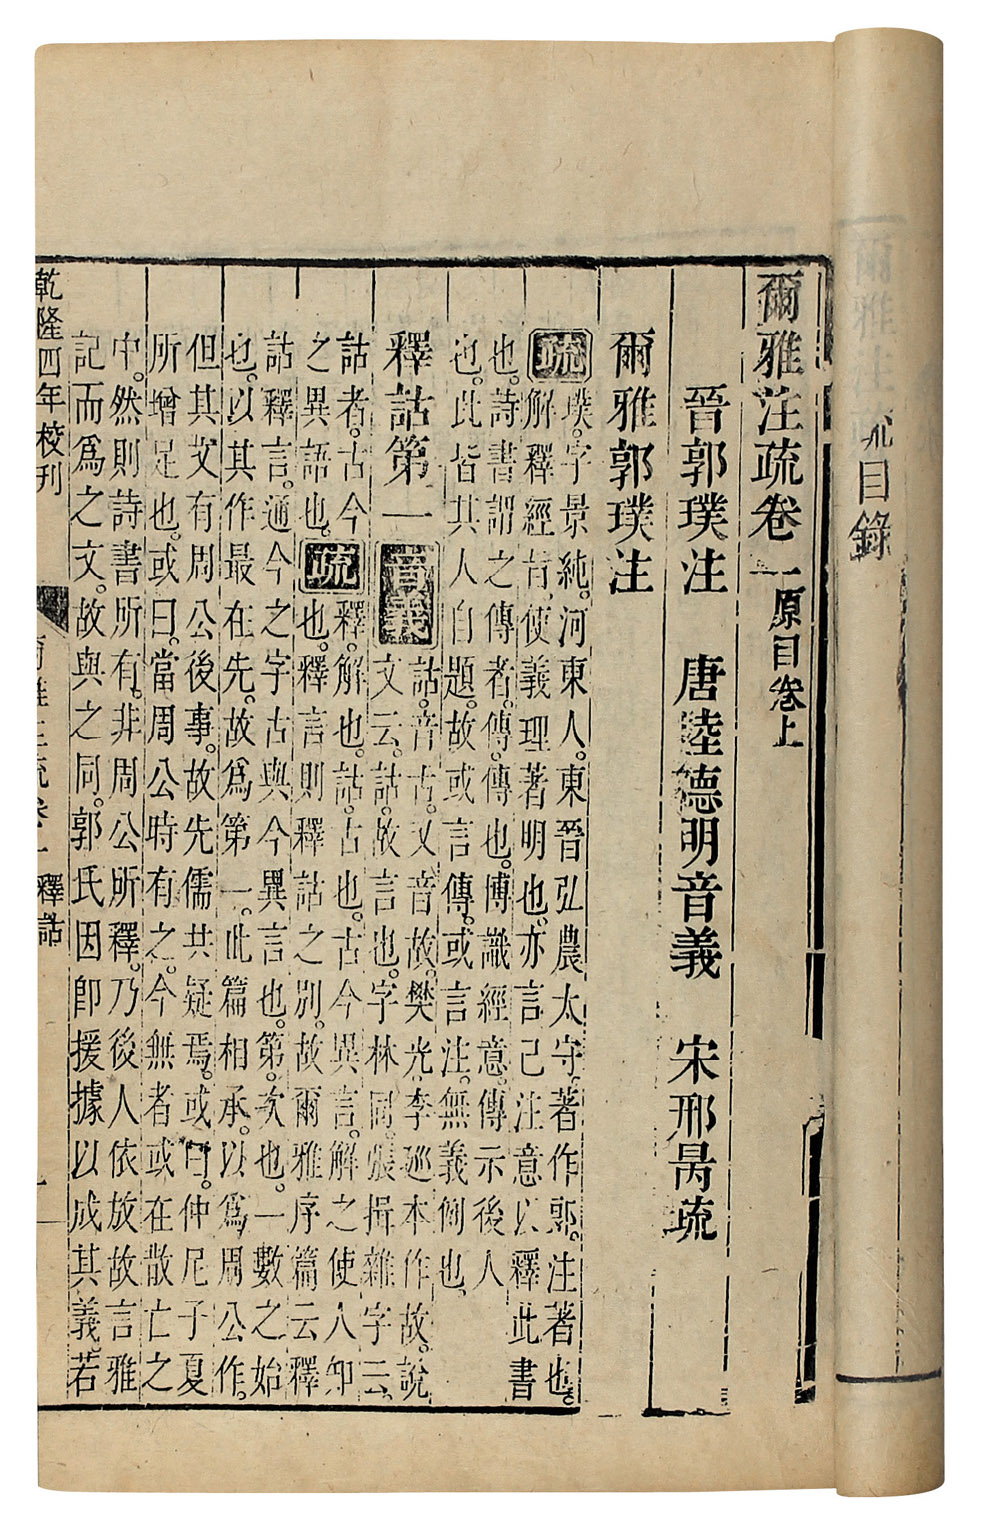 爾雅注疏目錄
爾雅注疏卷一原目卷上
晉郭璞注　唐陸德明音義　宋邢昺疏
爾雅郭璞注
疏璞。字景純。河東人。東晉弘農太守。著作郎。注著也。
解釋經旨。使義理著明也。亦言己注意以釋此書
也。詩書謂之傳者。傳。傳也。博識經意。傳示後人
也。此皆其人自題。故或言傳。或言注。無義例也
釋詁第一
音義詁。音古。又音故。樊光。李巡本作故。說
文云。詁。故言也。字林同。張揖雜字云。
詁者。古今
之異語也。
疏釋。解也。詁。古也。古今異言。解之使人知
也。釋言則釋詁之別。故爾雅序篇云釋
詁釋言。通今之字古與今異言也。第。次也。一數之始
也。以其作最在先。故爲第一。此篇相承。以爲周公作。
但其文有周公後事。故先儒共疑焉。或曰。仲尼子夏
所增足也。或曰。當周公時有之。今無者或在散亡之
中。然則詩書所有。非周公所釋。乃後人依放故言雅
記而爲之文。故與之同。郭氏因卽援據以成其義。若
乾隆四年校刊
爾雅注疏卷一　釋詁
一